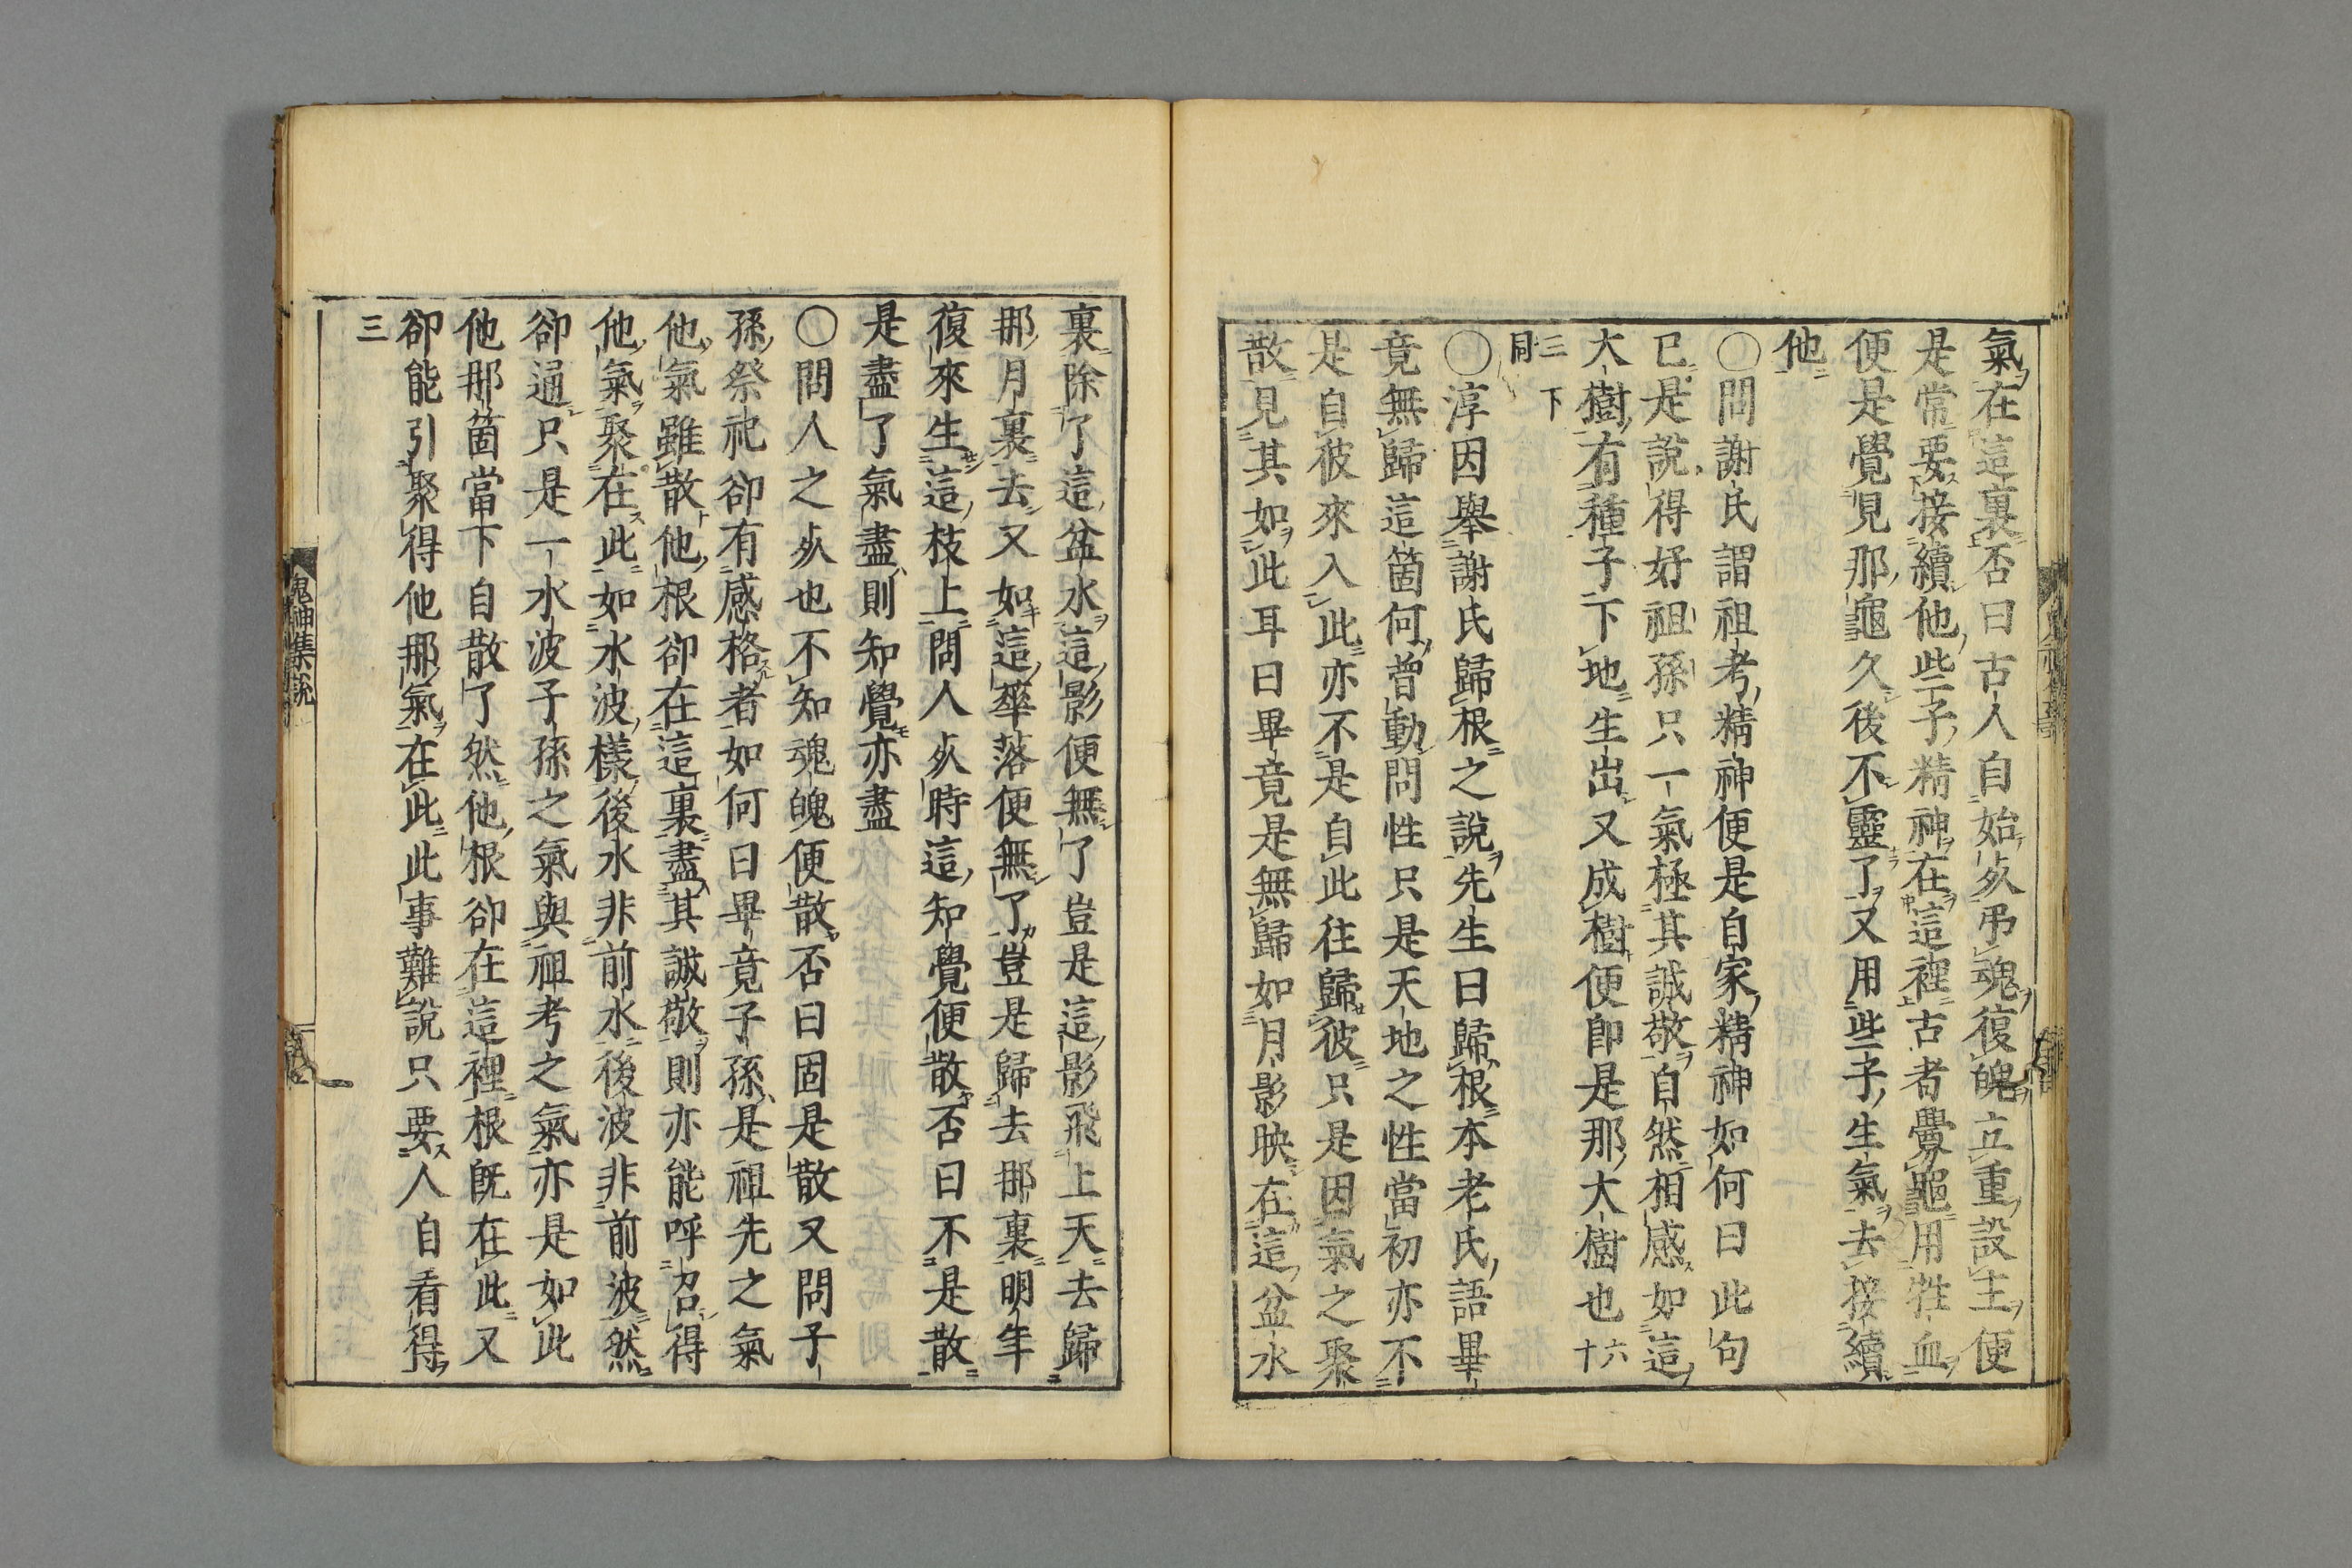 氣在這裏否曰古人自始死弔魂復魄立重設主便
是常要接續他些子精神在這裡古者釁龜用牲血
便是覺見那龜久後不靈了又用些子生氣去接續
他
〇問謝氏謂祖考精神便是自家精神如何曰此句
已是說得好祖孫只一氣極其誠敬自然相感如這
大樹有種子下地生出又成樹便即是那大樹也六十
三下同
〇淳因舉謝氏歸根之說先生曰歸根本老氏語畢
竟無歸這箇何曾動問性只是天地之性當初亦不
是自彼來入此亦不是自此往歸彼只是因氣之聚
散見其如此耳曰畢竟是無歸如月影映在這盆水
裏除了這盆水這影便無了豈是這影飛上天去歸
那月裏去又如這華落便無了豈是歸去那裏明年
復來生這枝上問人死時這知覺便散否曰不是散
是盡了氣盡則知覺亦盡
〇問人之死也不知魂魄便散否曰固是散又問子
孫祭祀卻有感格者如何曰畢竟子孫是祖先之氣
他氣雖散他根卻在這裏盡其誠敬則亦能呼召得
他氣聚在此如水波樣後水非前水後波非前波然
卻通只是一水波子孫之氣與祖考之氣亦是如此
他那箇當下自散了然他根卻在這裡根既在此又
卻能引聚得他那氣在此此事難說只要人自看得
三
鬼神集說